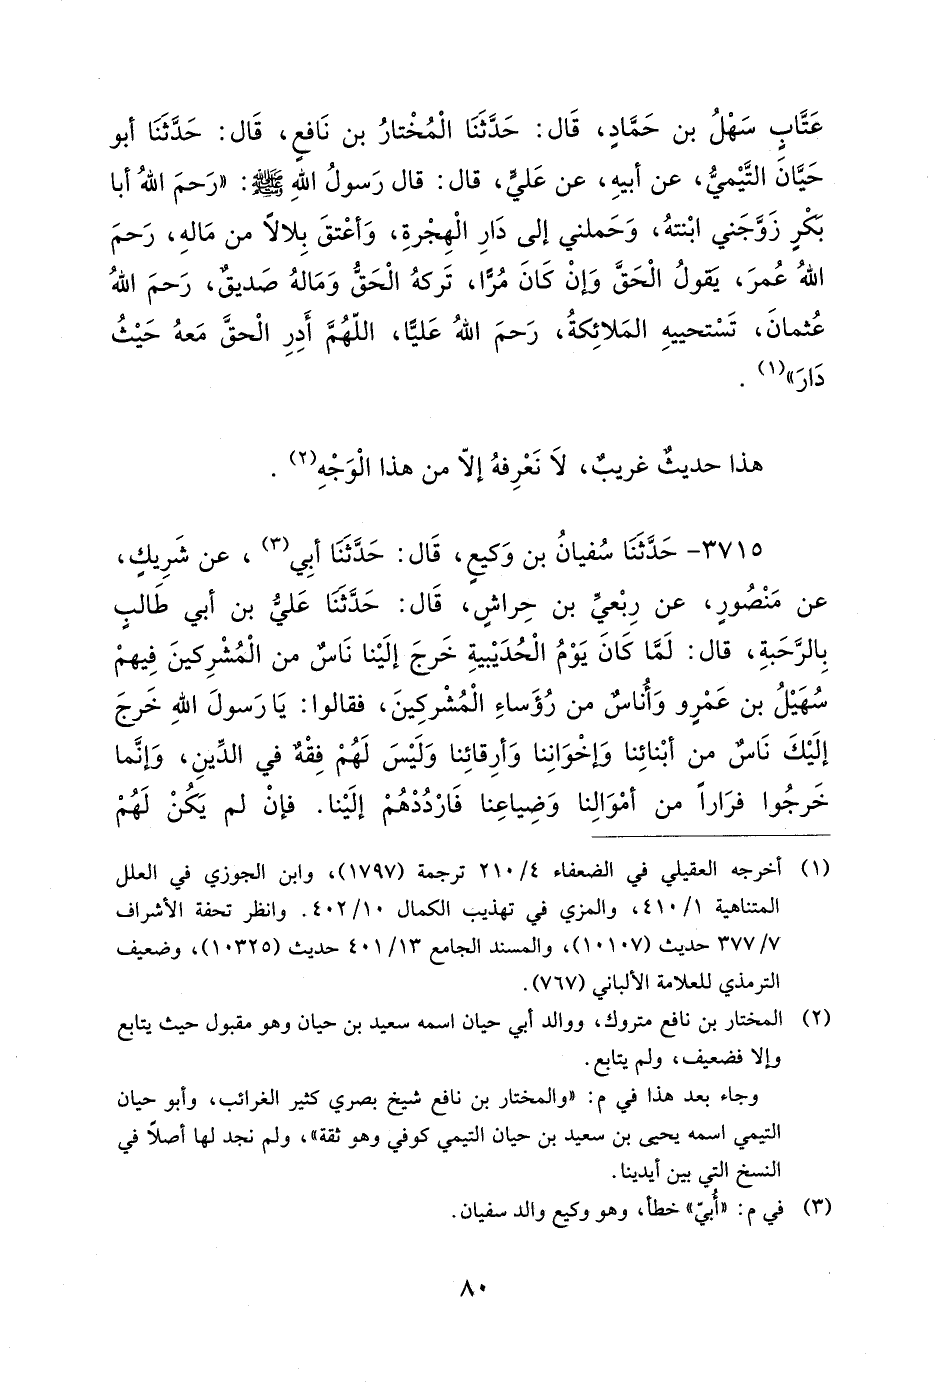 عَتَّابٍ سَهْلُ بن حَمَّادٍ، قَال: حَدَّثَنَا الْمُخْتارُ بن نَافعٍ، قَال: حَدَّثَنَا أبو
حَيَّانَ التَّيْميُّ، عن أبيهِ، عن عَليٍّ، قال: قال رَسولُ اللهِ ﷺ: «رَحمَ اللهُ أبا
بَكْرٍ زَوَّجَني ابْنتهُ، وَحَملني إلى دَارِ الْهِجْرةِ، وَأعْتقَ بِلالاً من مَالهِ، رَحمَ
اللهُ عُمرَ، يَقولُ الْحَقَّ وَإنْ كَانَ مُرًّا، تَركهُ الْحَقُّ وَمَالهُ صَديقٌ، رَحمَ اللهُ
عُثمانَ، تَسْتحييهِ المَلائِكةُ، رَحمَ اللهُ عَليًّا، اللّهُمَّ أَدِرِ الْحقَّ مَعهُ حَيْثُ
دَارَ»(١) .
هذا حديثٌ غريبٌ، لاَ نَعْرِفهُ إلاّ من هذا الْوَجْهِ(٢) .
٣٧١٥- حَدَّثَنَا سُفيانُ بن وَكيعٍ، قَال: حَدَّثَنَا أبِي(٣) ، عن شَرِيكٍ،
عن مَنْصُورٍ، عن رِبْعيِّ بن حِراشٍ، قَال: حَدَّثَنَا عَليُّ بن أبي طَالبٍ
بِالرَّحَبةِ، قال: لَمَّا كَانَ يَوْمُ الْحُدَيْبيةِ خَرجَ إلَيْنا نَاسٌ من الْمُشْرِكينَ فِيهمْ
سُهَيْلُ بن عَمْرٍو وَأُناسٌ من رُؤَساءِ الْمُشْركينَ، فقالوا: يَا رَسولَ اللهِ خَرجَ
إلَيْكَ نَاسٌ من أبْنائِنا وَإخْوَانِنا وَأرِقائِنا وَلَيْسَ لَهُمْ فِقْهٌ في الدِّينِ، وَإنَّما
خَرجُوا فرَاراً من أمْوَالِنا وَضِياعِنا فَارْدُدْهُمْ إلَيْنا. فإنْ لم يَكُنْ لَهُمْ
(١) أخرجه العقيلي في الضعفاء ٤/ ٢١٠ ترجمة (١٧٩٧)، وابن الجوزي في العلل
المتناهية ١/ ٤١٠، والمزي في تهذيب الكمال ١٠/ ٤٠٢. وانظر تحفة الأشراف
٧/ ٣٧٧ حديث (١٠١٠٧)، والمسند الجامع ١٣/ ٤٠١ حديث (١٠٣٢٥)، وضعيف
الترمذي للعلامة الألباني (٧٦٧).
(٢) المختار بن نافع متروك، ووالد أبي حيان اسمه سعيد بن حيان وهو مقبول حيث يتابع
وإلا فضعيف، ولم يتابع.
وجاء بعد هذا في م: «والمختار بن نافع شيخ بصري كثير الغرائب، وأبو حيان
التيمي اسمه يحيى بن سعيد بن حيان التيمي كوفي وهو ثقة»، ولم نجد لها أصلاً في
النسخ التي بين أيدينا.
(٣) في م: «أُبيّ» خطأ، وهو وكيع والد سفيان.
٨٠